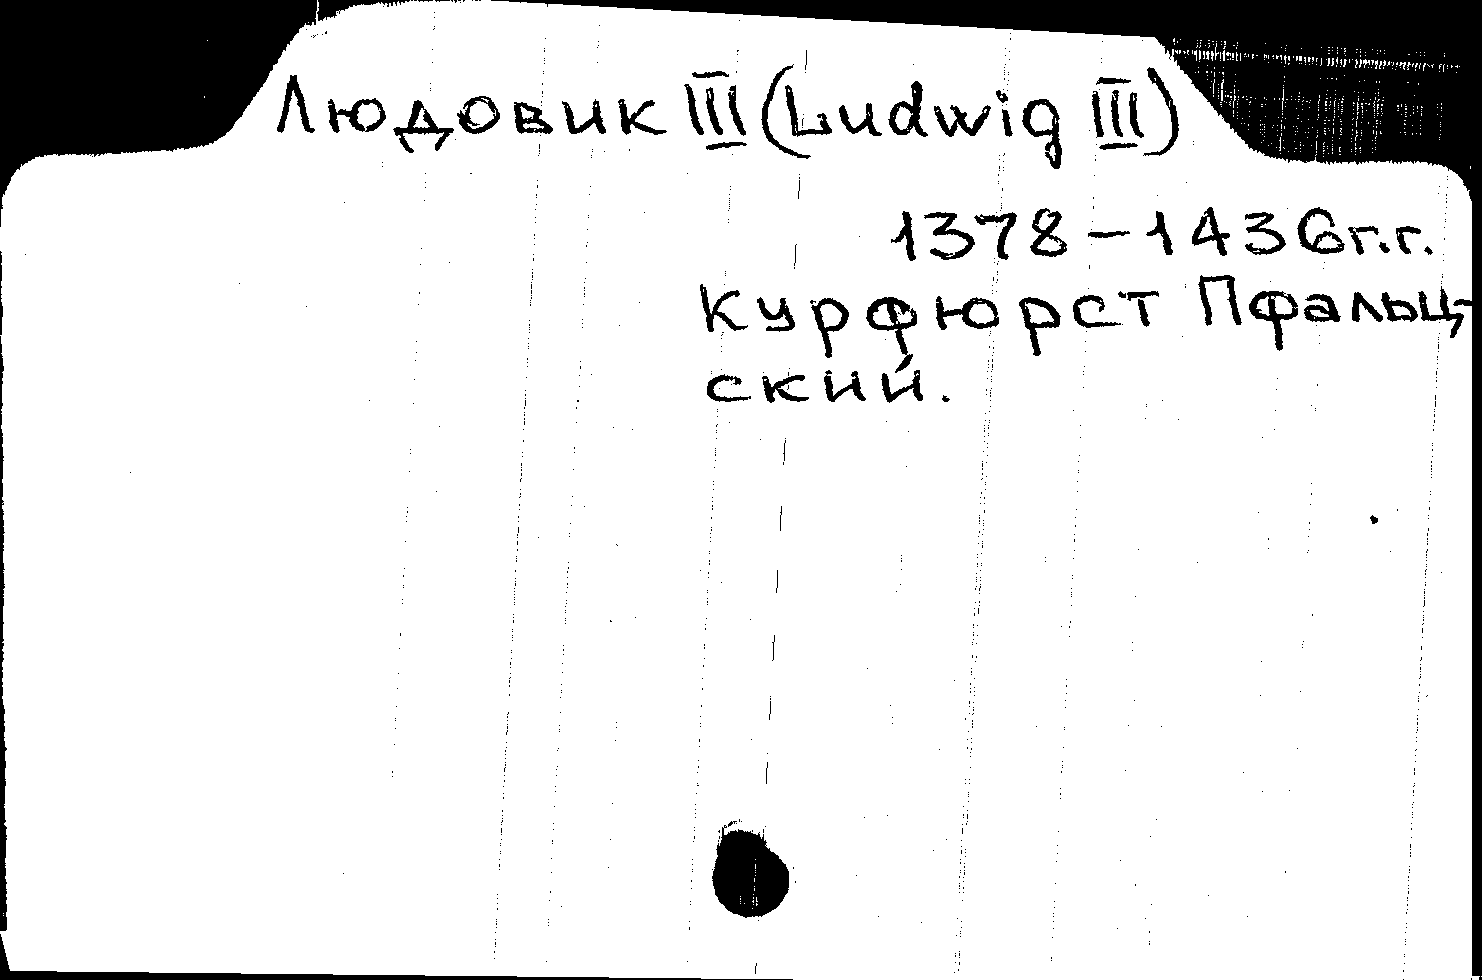 Людовик III (Ludwig III)
1378 – 1436 г.г.
Курфюрст Пфальц-
ский.